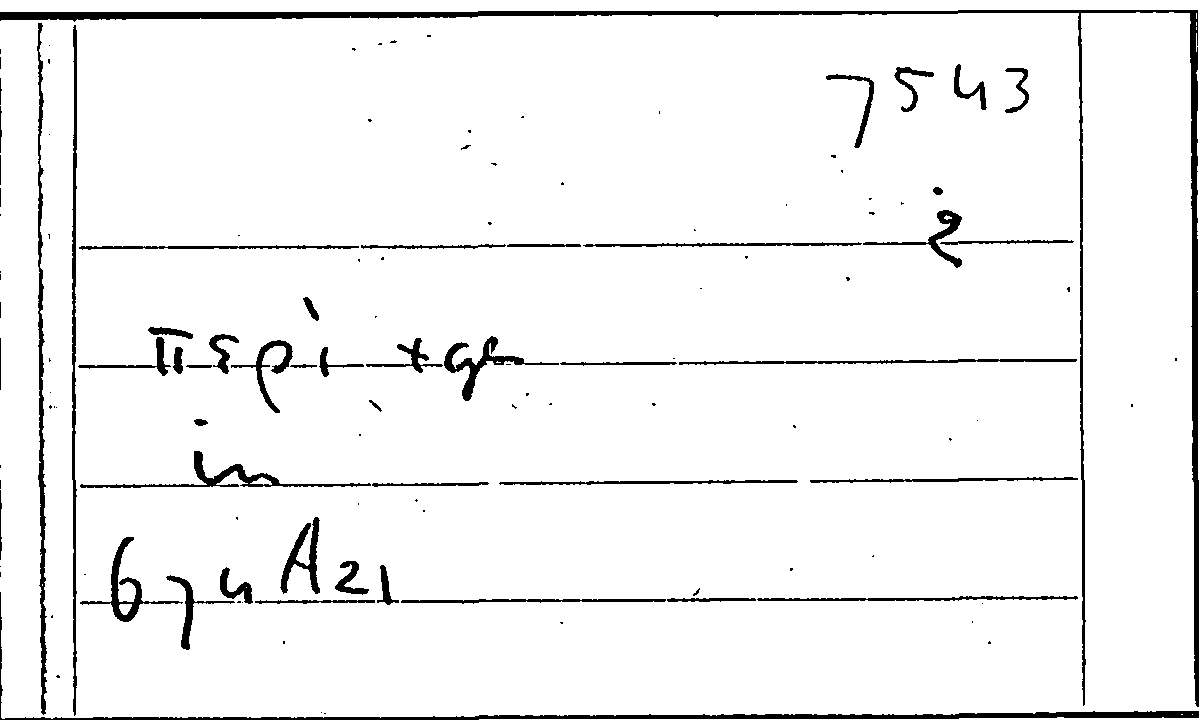 7543
περὶ
in
674 A21